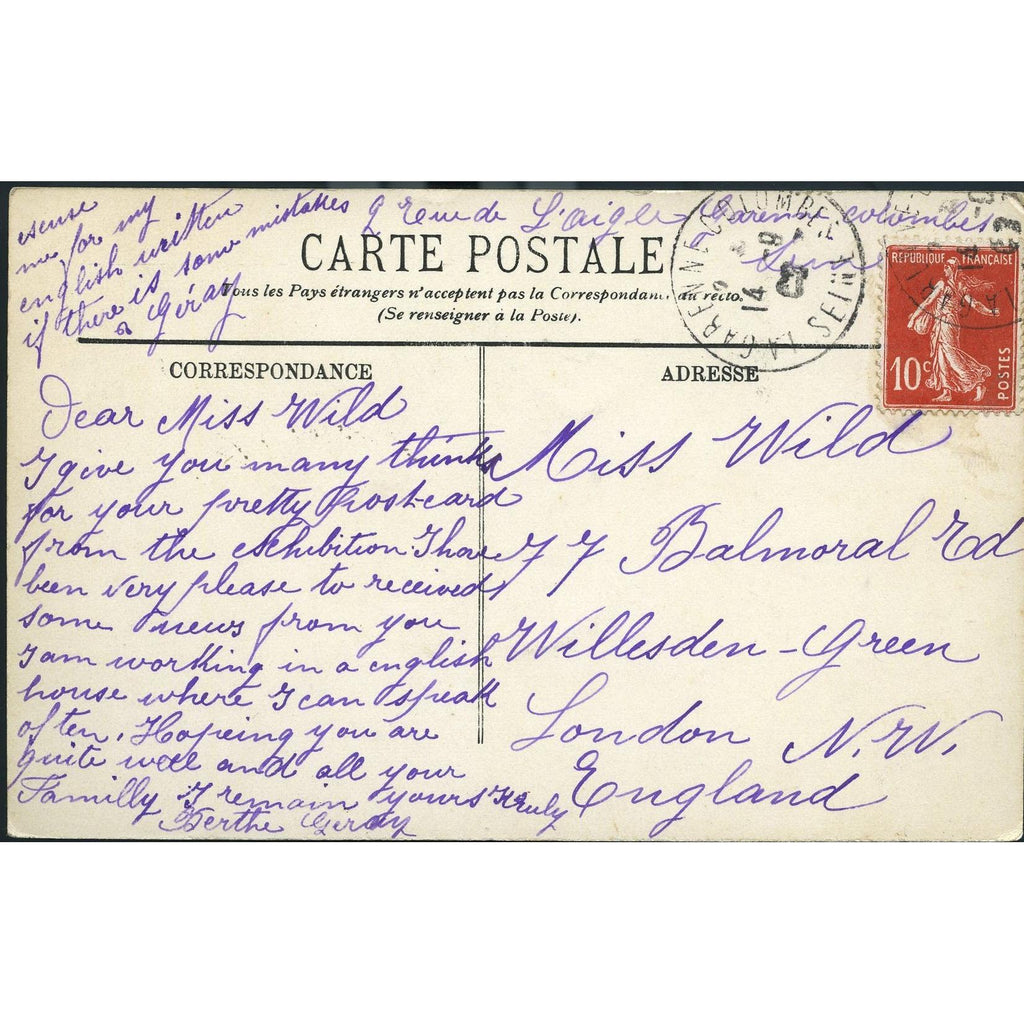 esense
me for my
english written
if there is some mistakes
a Géray
9 rue de L'aigle Garenne Colombes
Seine
CARTE POSTALE
Tous les Pays étrangers n'acceptent pas la Correspondance au recto.
(Se renseigner à la Poste).
CORRESPONDANCE
Dear Miss Wild
I give you many thinks
for your pretty post-card
from the exhibition. I have
been very please to received
some news from you
I am working in a english
house where I can speak
often. Hopeing you are
quite well and all your
Familly I remain yours truly
Berthe Geray
ADRESSE
Miss Wild
77 Balmoral Rd
Willesden-Green
London N.W.
England
LA GARENNE-COLOMBES
SEINE
14 -9
08
RÉPUBLIQUE FRANÇAISE
10c
POSTES